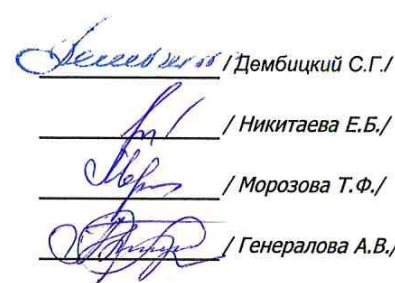 / Дембицкий С.Г./
/ Никитаева Е.Б./
/ Морозова Т.Ф./
/ Генералова А.В./